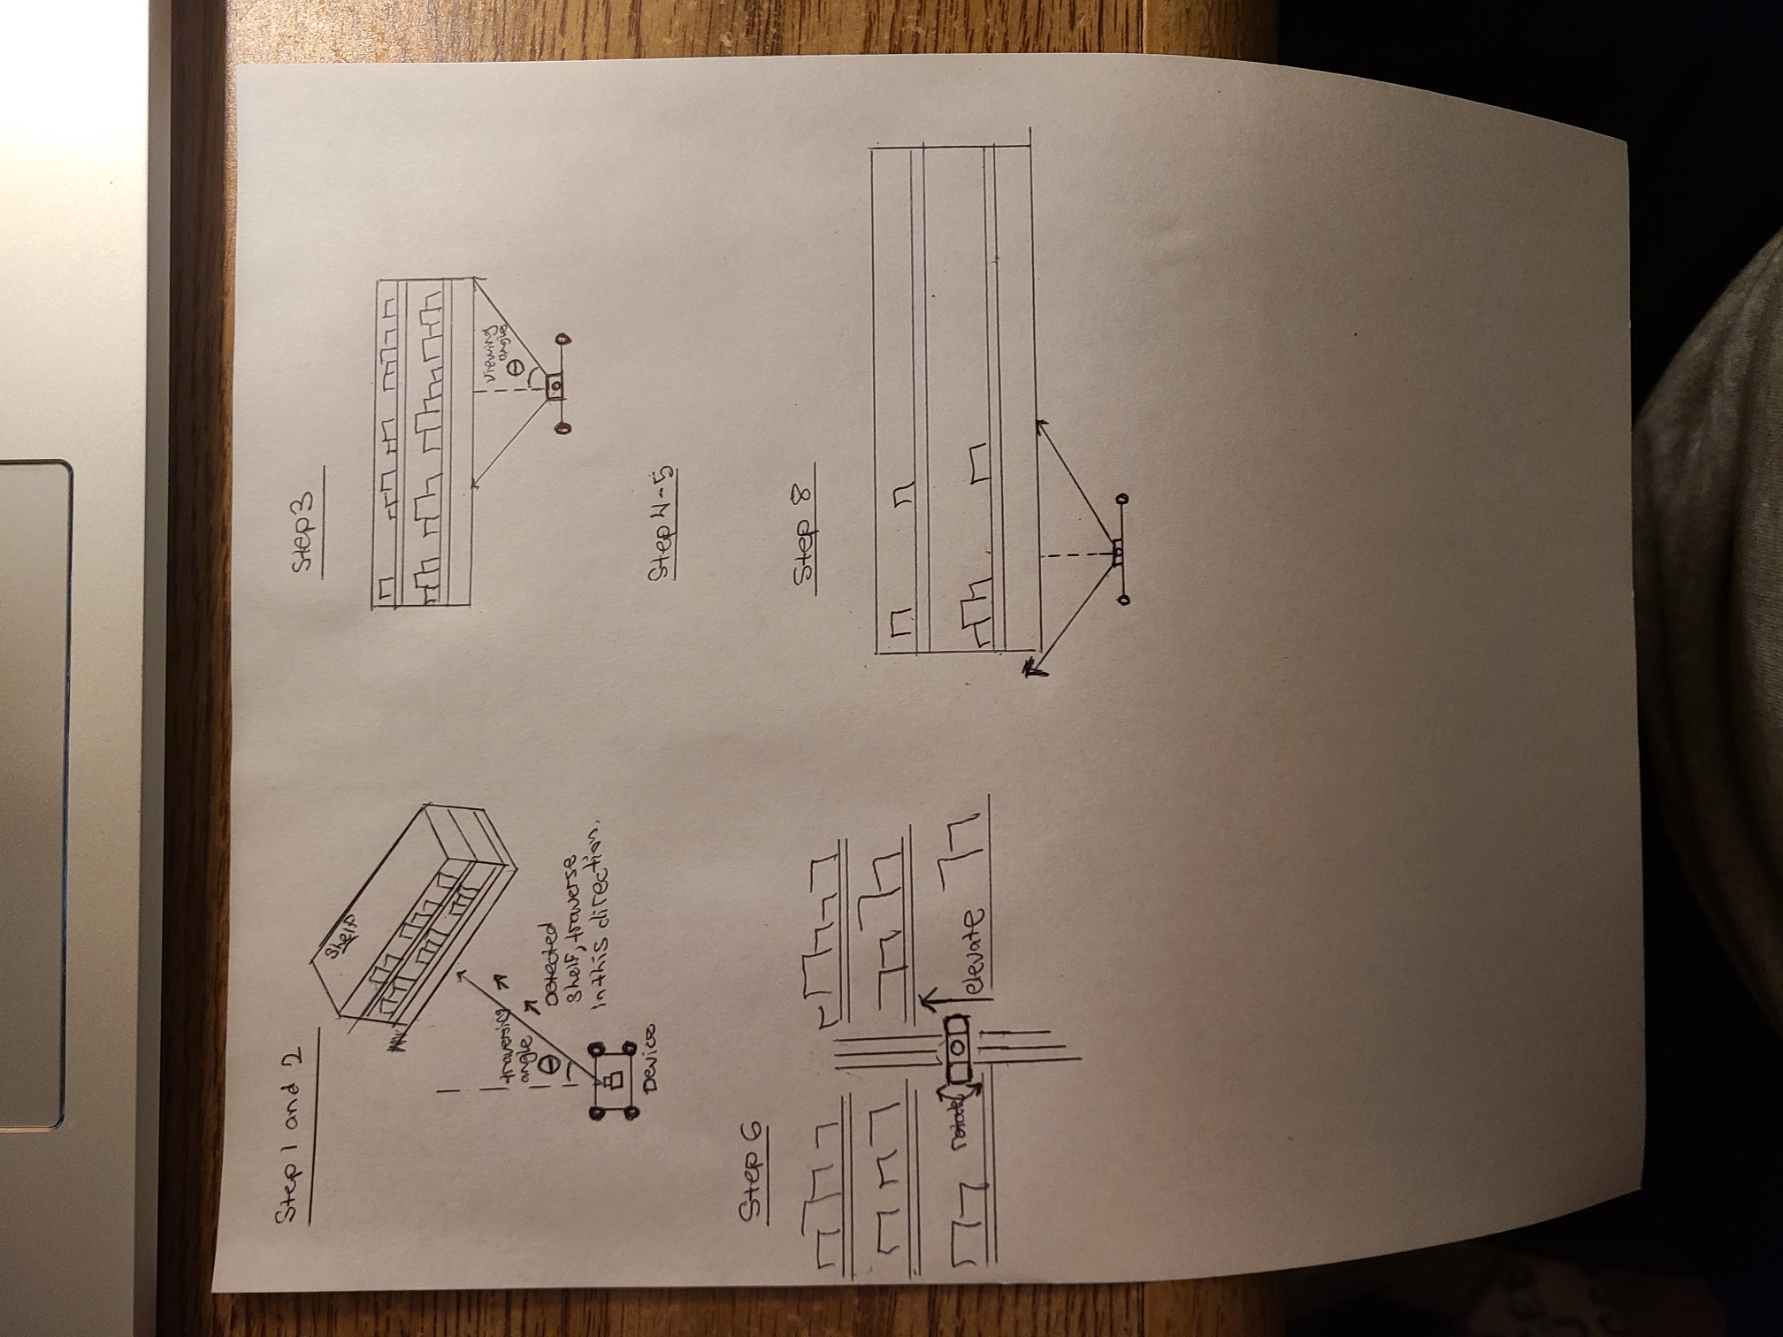 Step 1 and 2
Shelf
traversing
angle
Θ
Detected
shelf, traverse
in this direction.
Device
Step 3
viewing
angle
Θ
Step 4-5
Step 6
rotate
elevate
Step 8